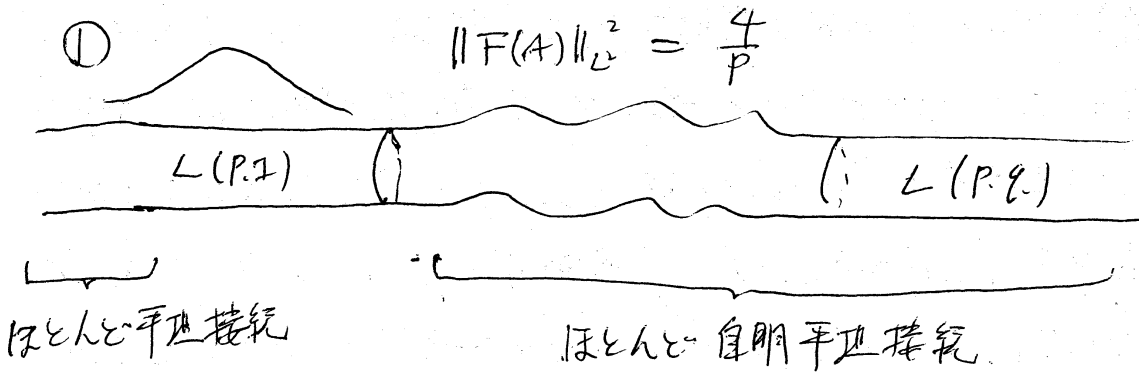 ① ‖F(A)‖²_{L²} = 4/p
L(p.1) L(p.q.)
ほとんど平坦接続 ほとんど自明平坦接続.